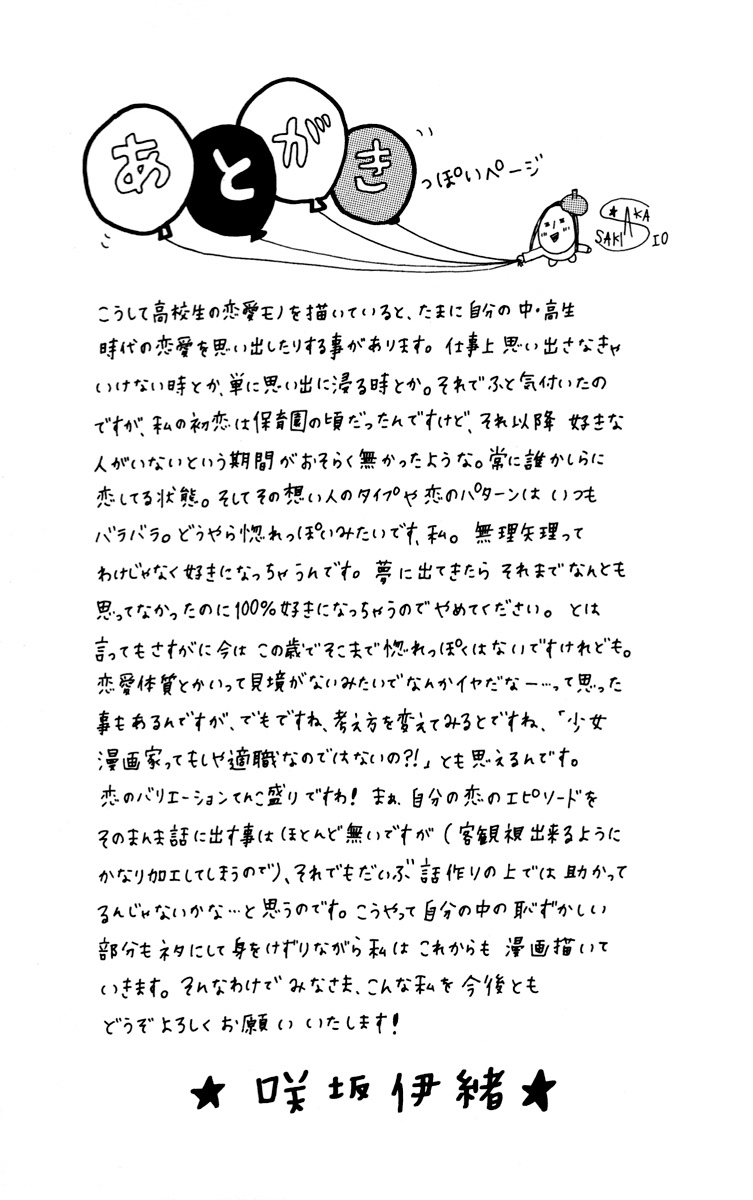 あとがき
っぽいページ
SAKISAKA IO
こうして高校生の恋愛モノを描いていると、たまに自分の中・高生
時代の恋愛を思い出したりする事があります。仕事上思い出さなきゃ
いけない時とか、単に思い出に浸る時とか。それでふと気付いたの
ですが、私の初恋は保育園の頃だったんですけど、それ以降 好きな
人がいないという期間がおそらく無かったような。常に誰かしらに
恋してる状態。そしてその想い人のタイプや恋のパターンは いつも
バラバラ。どうやら惚れっぽいみたいです、私。 無理矢理って
わけじゃなく好きになっちゃうんです。 夢に出てきたら それまでなんとも
思ってなかったのに100%好きになっちゃうのでやめてください。 とは
言ってもさすがに今は この歳でそこまで惚れっぽくはないですけれども。
恋愛体質とかいって見境がないみたいでなんかイヤだなー…って思った
事もあるんですが、でもですね、考え方を変えてみるとですね、「少女
漫画家ってもしや適職なのではないの?!」とも思えるんです。
恋のバリエーションてんこ盛りですわ! まぁ、自分の恋のエピソードを
そのまんま話に出す事はほとんど無いですが(客観視出来るように
かなり加工してしまうので)、それでもだいぶ話作りの上では助かって
るんじゃないかな…と思うのです。こうやって自分の中の恥ずかしい
部分もネタにして身をけずりながら私は これからも 漫画描いて
いきます。 そんなわけで みなさま、こんな私を 今後とも
どうぞよろしく お願い いたします!
★ 咲坂伊緒 ★